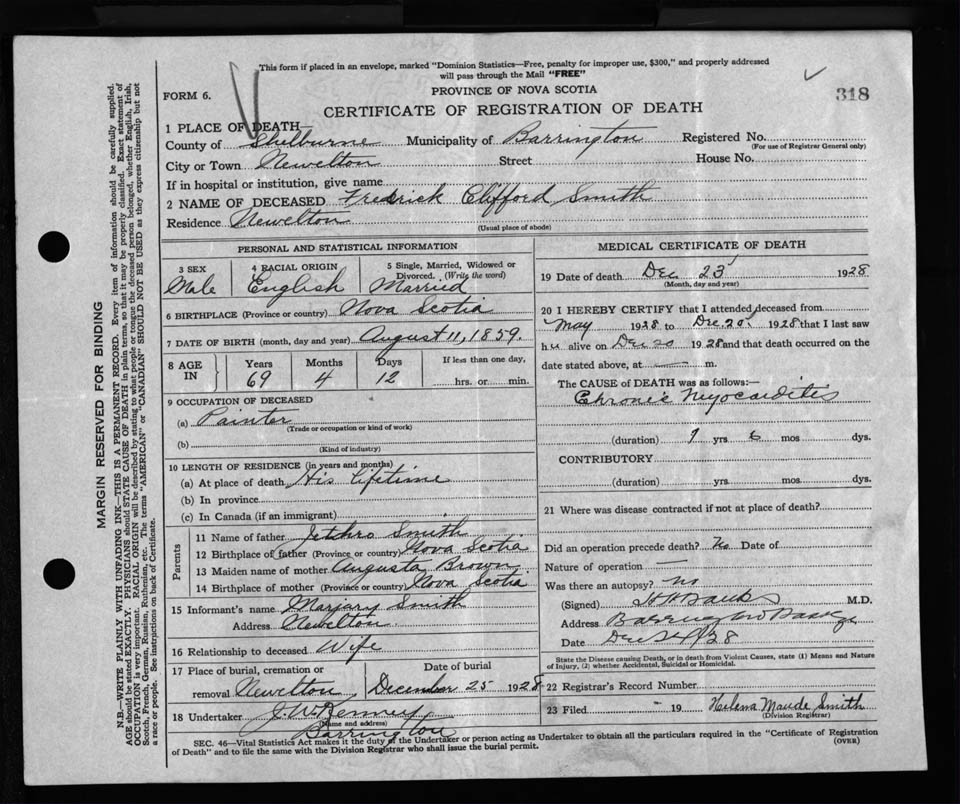 This form if placed in an envelope, marked "Dominion Statistics—Free, penalty for improper use, $300," and properly addressed
will pass through the Mail "FREE"
FORM 6.
PROVINCE OF NOVA SCOTIA
318
CERTIFICATE OF REGISTRATION OF DEATH
1 PLACE OF DEATH—
County of Shelburne Municipality of Barrington Registered No.
(For use of Registrar General only)
City or Town Newelton Street House No.
If in hospital or institution, give name
2 NAME OF DECEASED Fredrick Clifford Smith
Residence Newelton
(Usual place of abode)
PERSONAL AND STATISTICAL INFORMATION
3 SEX 4 RACIAL ORIGIN 5 Single, Married, Widowed or
Divorced. (Write the word)
Male English Married
6 BIRTHPLACE (Province or country) Nova Scotia
7 DATE OF BIRTH (month, day and year) August 11, 1859.
8 AGE IN Years Months Days If less than one day,
69 4 12 hrs. or min.
9 OCCUPATION OF DECEASED
(a) Painter
(Trade or occupation or kind of work)
(b)
(Kind of industry)
10 LENGTH OF RESIDENCE (in years and months)
(a) At place of death His Lifetime
(b) In province
(c) In Canada (if an immigrant)
Parents
11 Name of father Jethro Smith
12 Birthplace of father (Province or country) Nova Scotia
13 Maiden name of mother Augusta Brown
14 Birthplace of mother (Province or country) Nova Scotia
15 Informant's name Marjary Smith
Address Newelton
16 Relationship to deceased Wife
17 Place of burial, cremation or Date of burial
removal Newelton December 25 1928
18 Undertaker J W Kenney
(Name and address)
Barrington
MEDICAL CERTIFICATE OF DEATH
19 Date of death Dec 23 1928
(Month, day and year)
20 I HEREBY CERTIFY that I attended deceased from
May 1928 to Dec. 20 1928 that I last saw
h alive on Dec 20 1928 and that death occurred on the
date stated above, at m.
The CAUSE OF DEATH was as follows:—
Chronic Myocarditis
(duration) yrs 6 mos dys.
CONTRIBUTORY
(duration) yrs. mos. dys.
21 Where was disease contracted if not at place of death?
Did an operation precede death? No Date of
Nature of operation —
Was there an autopsy? No
(Signed) Banks M.D.
Address Barrington Passage
Date Dec 24/28
State the Disease causing Death, or in death from Violent Causes, state (1) Means and Nature
of Injury, (2) whether Accidental, Suicidal or Homicidal.
22 Registrar's Record Number
23 Filed 19 Helena Maude Smith
(Division Registrar)
SEC. 46—Vital Statistics Act makes it the duty of the Undertaker or person acting as Undertaker to obtain all the particulars required in the "Certificate of Registration
of Death" and to file the same with the Division Registrar who shall issue the burial permit.
(OVER)
MARGIN RESERVED FOR BINDING
N.B.—WRITE PLAINLY WITH UNFADING INK—THIS IS A PERMANENT RECORD. Every item of information should be carefully supplied.
AGE should be stated EXACTLY. PHYSICIANS should STATE CAUSE OF DEATH in plain terms, so that it may be properly classified. Exact statement of
OCCUPATION is very important. RACIAL ORIGIN will be described by stating to what people or tongue the deceased person belonged, whether English, Irish,
Scotch, French, German, Russian, Ruthenian, etc. The terms "AMERICAN" or "CANADIAN" SHOULD NOT BE USED as they express citizenship but not
a race or people. See instructions on back of Certificate.